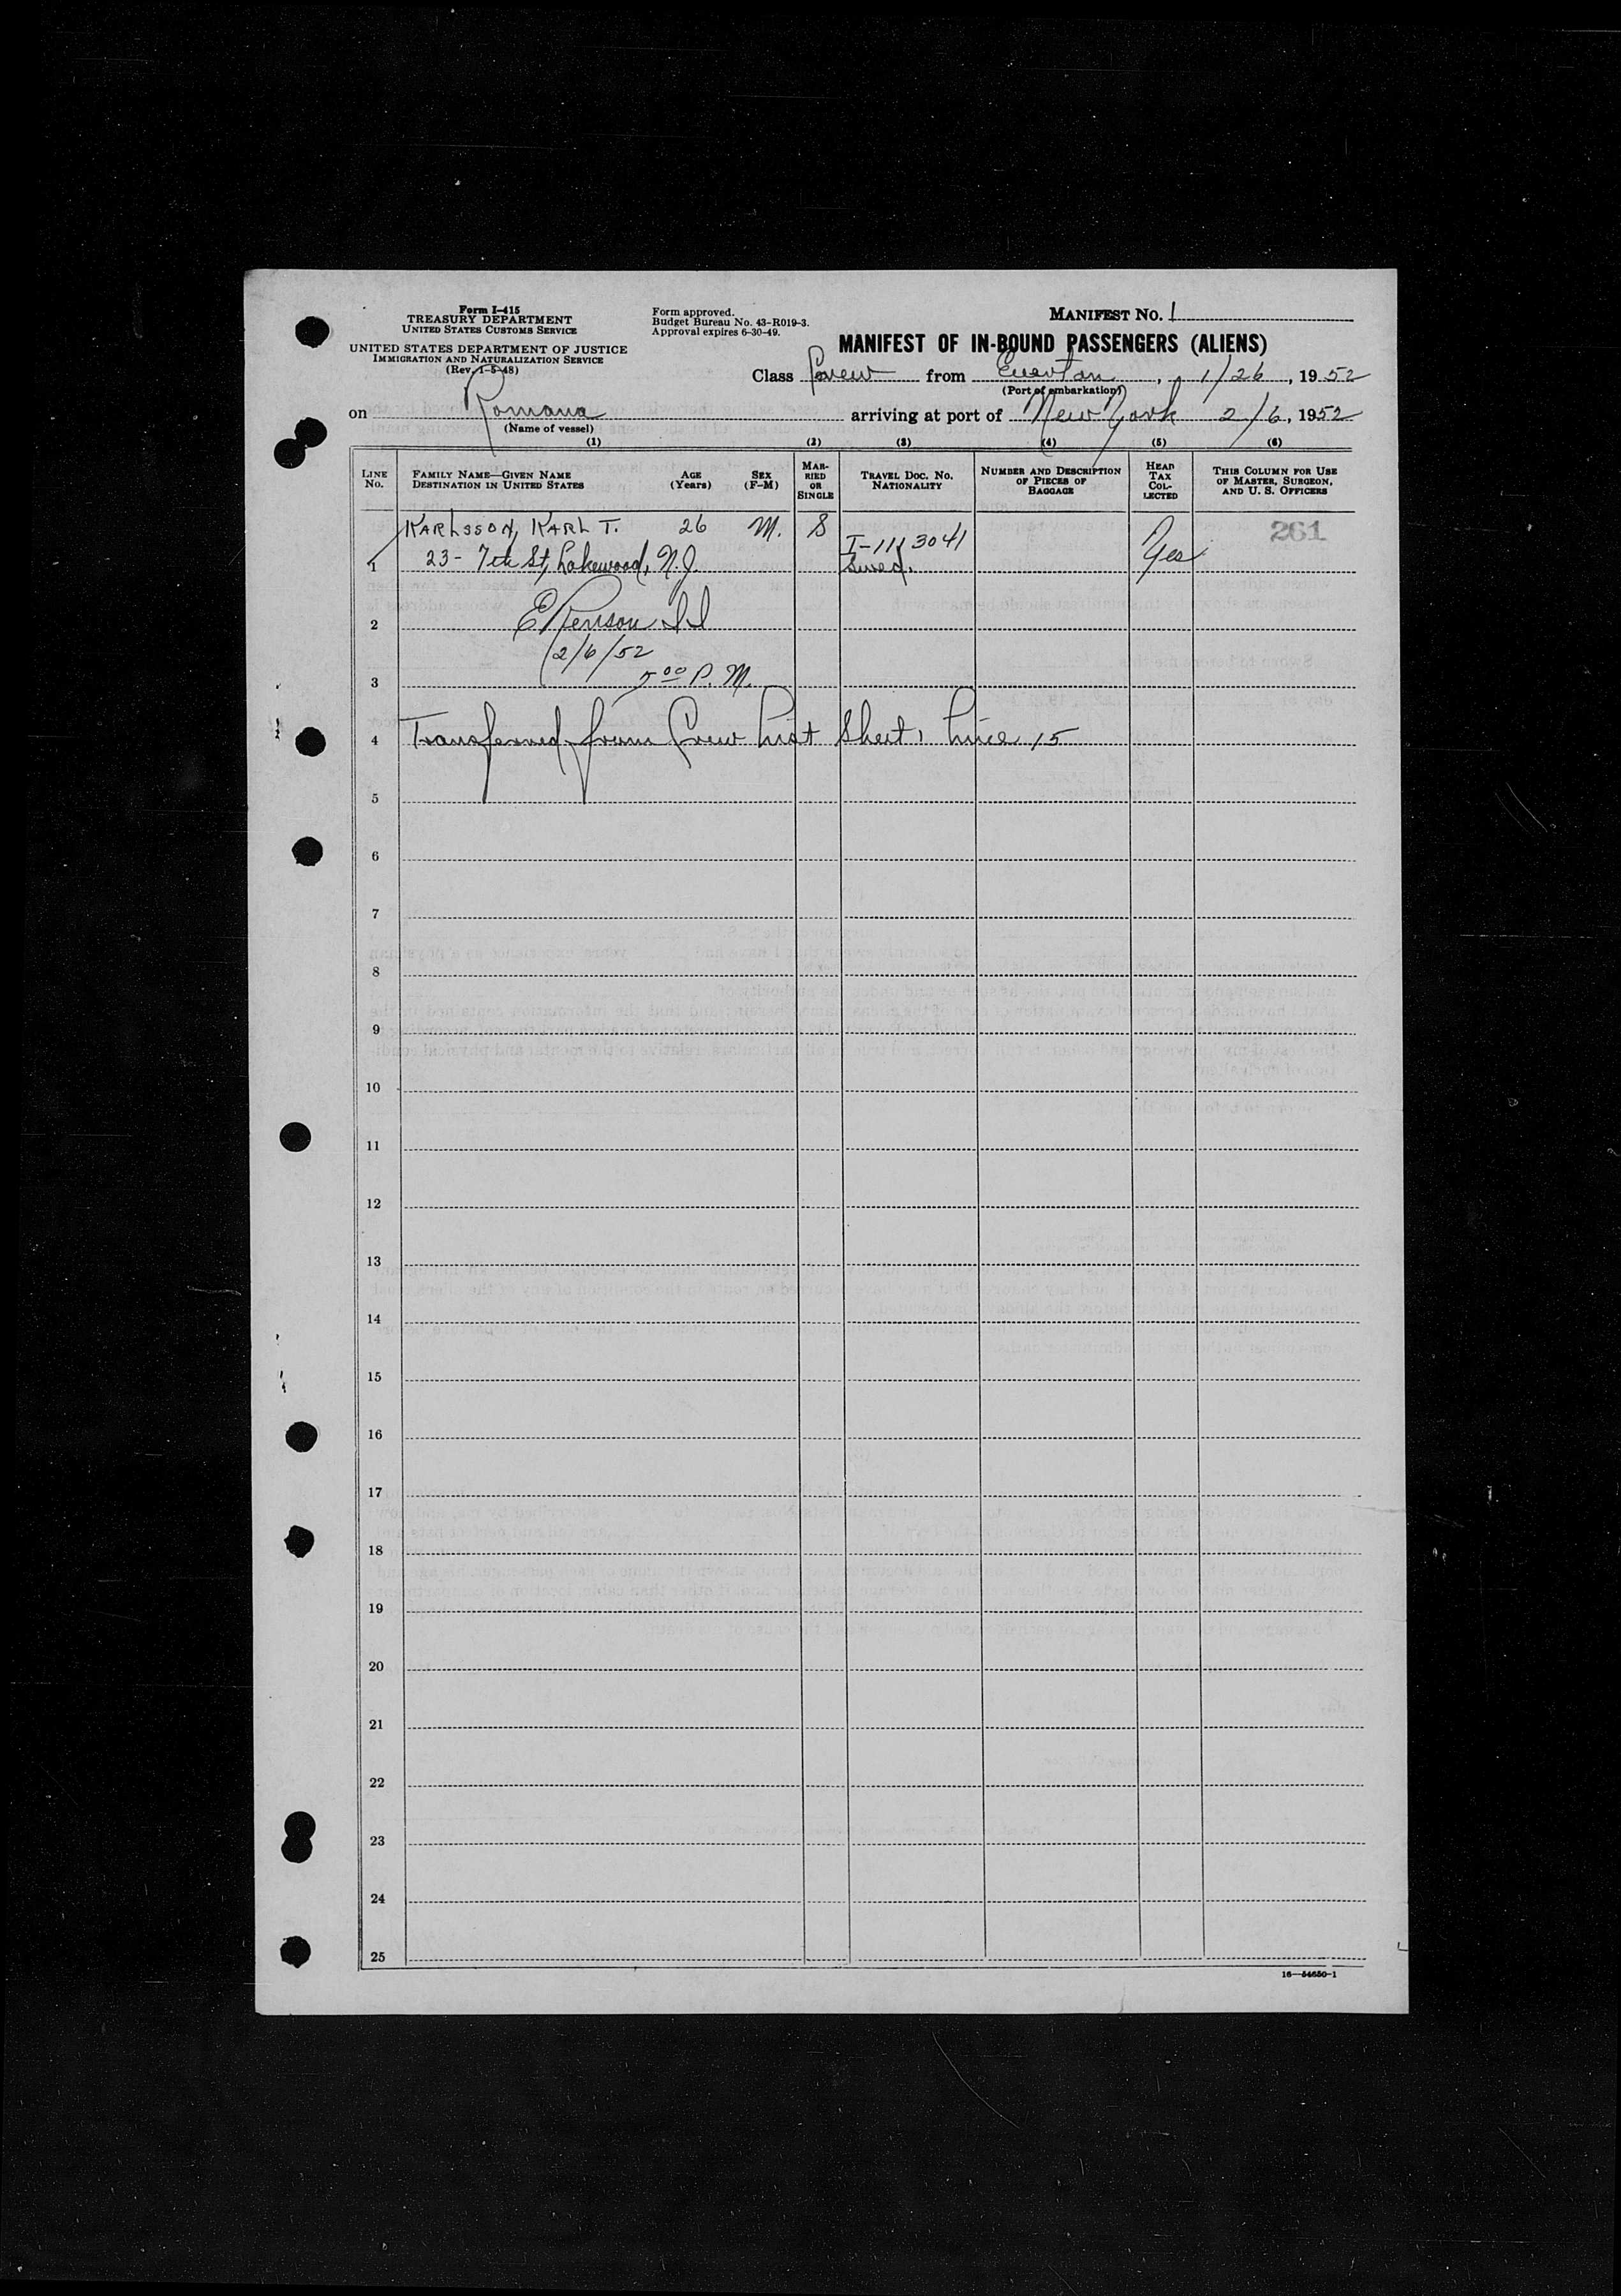 Form I-415
TREASURY DEPARTMENT
UNITED STATES CUSTOMS SERVICE
UNITED STATES DEPARTMENT OF JUSTICE
IMMIGRATION AND NATURALIZATION SERVICE
(Rev. 1-5-48)
Form approved.
Budget Bureau No. 43-R019-3.
Approval expires 6-30-49.
MANIFEST NO. 1
MANIFEST OF IN-BOUND PASSENGERS (ALIENS)
Class Crew from , 1/26, 1952
(Port of embarkation)
on Romana arriving at port of New York 2/6, 1952
(Name of vessel)
(1) (2) (3) (4) (5) (6)
LINE No. FAMILY NAME—GIVEN NAME DESTINATION IN UNITED STATES AGE (Years) SEX (F-M) MAR-RIED OR SINGLE TRAVEL DOC. NO. NATIONALITY NUMBER AND DESCRIPTION OF PIECES OF BAGGAGE HEAD TAX COL-LECTED THIS COLUMN FOR USE OF MASTER, SURGEON, AND U. S. OFFICERS
KARLSSON, KARL T. 26 M. S I-111 3041 Yes 261
1 23- 7th St, Lakewood, N.J. Swed.
2
2/6/52
3 5 00 P. M.
4 Transferred from Crew List Sheet 1 Line 15
5
6
7
8
9
10
11
12
13
14
15
16
17
18
19
20
21
22
23
24
25
16—54650-1